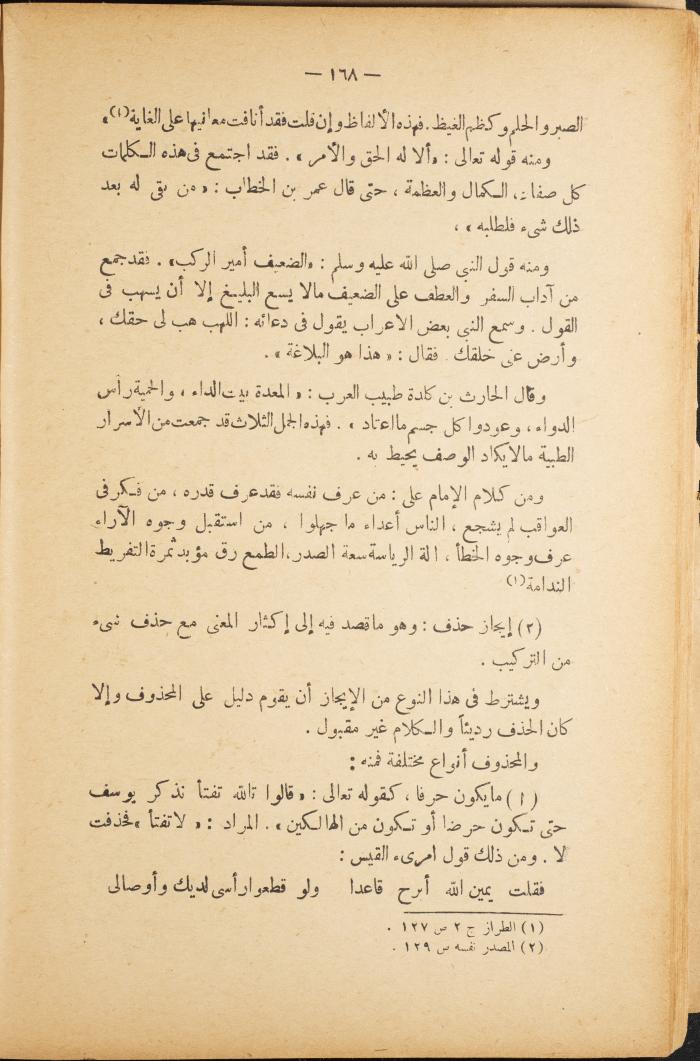 — ١٦٨ —
الصبر والحلم وكظم الغيظ. فهذه الألفاظ وإن قلت فقد أنافت معانيها على الغاية(١)،
ومنه قوله تعالى : «ألا له الحق والأمر» . فقد اجتمع فى هذه الكلمات
كل صفات الكمال والعظمة ، حتى قال عمر بن الخطاب : «من بقى له بعد
ذلك شىء فلطلبه» ،
ومنه قول النبى صلى الله عليه وسلم : «الضعيف أمير الركب» . فقد جمع
من آداب السفر والعطف على الضعيف مالا يسع البليغ إلا أن يسهب فى
القول . وسمع النبى بعض الاعراب يقول فى دعائه : اللهب هب لى حقك ،
وأرض عنى خلقك . فقال : «هذا هو البلاغة» .
وقال الحارث بن كلدة طبيب العرب : «المعدة بيت الداء ، والحمية رأس
الدواء ، وعودوا كل جسم ما اعتاد» . فهذه الجمل الثلاث قد جمعت من الأسرار
الطبية مالا يكاد الوصف يحيط به .
ومن كلام الإمام على : من عرف نفسه فقد عرف قدره ، من فكر فى
العواقب لم يشجع ، الناس أعداء ما جهلوا ، من استقبل وجوه الآراء
عرف وجوه الخطأ ، الة الرياسة سعة الصدر ، الطمع رق مؤبد ثمرة التفريط
الندامة(١)
(٢) إيجاز حذف : وهو ما قصد فيه إلى إكثار المعنى مع حذف شىء
من التركيب .
ويشترط فى هذا النوع من الإيجاز أن يقوم دليل على المحذوف وإلا
كان الحذف رديئاً والكلام غير مقبول .
والمحذوف أنواع مختلفة فمنه :
(١) مايكون حرفا ، كقوله تعالى : «قالوا تالله تفتأ تذكر يوسف
حتى تكون حرضا أو تكون من الهالكين» . المراد : «لا تفتأ» فحذفت
لا . ومن ذلك قول امرىء القيس :
فقلت يمين الله أبرح قاعدا ولو قطعوا رأسى لديك وأوصالى
(١) الطراز ج ٢ ص ١٢٧ .
(٢) المصدر نفسه ص ١٢٩ .